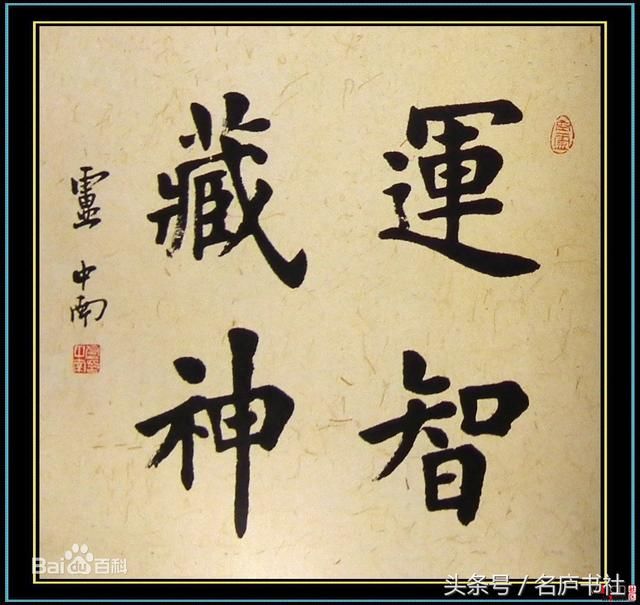 運智
藏神
盧中南
Bai百科
头条号／名庐书社